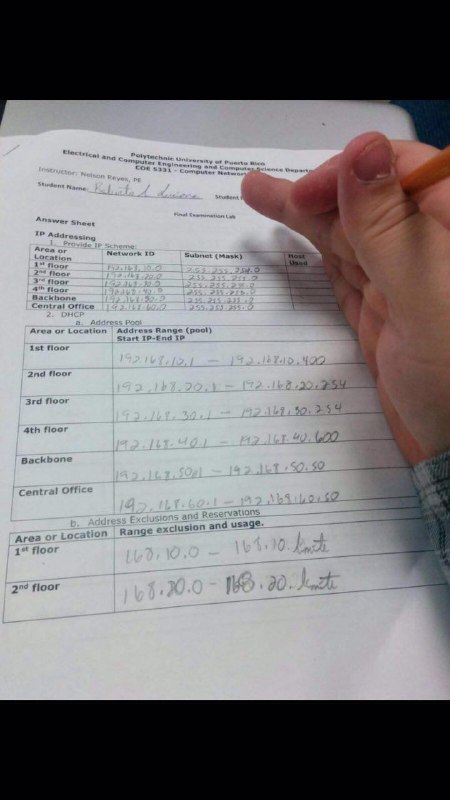 Polytechnic University of Puerto Rico
Electrical and Computer Engineering and Computer Science Depart
COE 5331 - Computer Network
Instructor: Nelson Reyes, PE
Student Name: Roberto
Student
Final Examination Lab
Answer Sheet
IP Addressing
1. Provide IP Scheme:
Area or Location Network ID Subnet (Mask) Host Used
1st floor 192.168.10.0 255.255.254.0
2nd floor 192.168.20.0 255.255.255.0
3rd floor 192.168.30.0 255.255.255.0
4th floor 192.168.40.0 255.255.255.0
Backbone 192.168.50.0 255.255.255.0
Central Office 192.168.60.0 255.255.255.0
2. DHCP
a. Address Pool
Area or Location Address Range (pool) Start IP-End IP
1st floor 192.168.10.1 – 192.168.10.400
2nd floor 192.168.20.1 – 192.168.20.254
3rd floor 192.168.30.1 – 192.168.30.254
4th floor 192.168.40.1 – 192.168.40.600
Backbone 192.168.50.1 – 192.168.50.50
Central Office 192.168.60.1 – 192.168.60.50
b. Address Exclusions and Reservations
Area or Location Range exclusion and usage.
1st floor 168.10.0 – 168.10.limite
2nd floor 168.20.0 – 168.20.limite